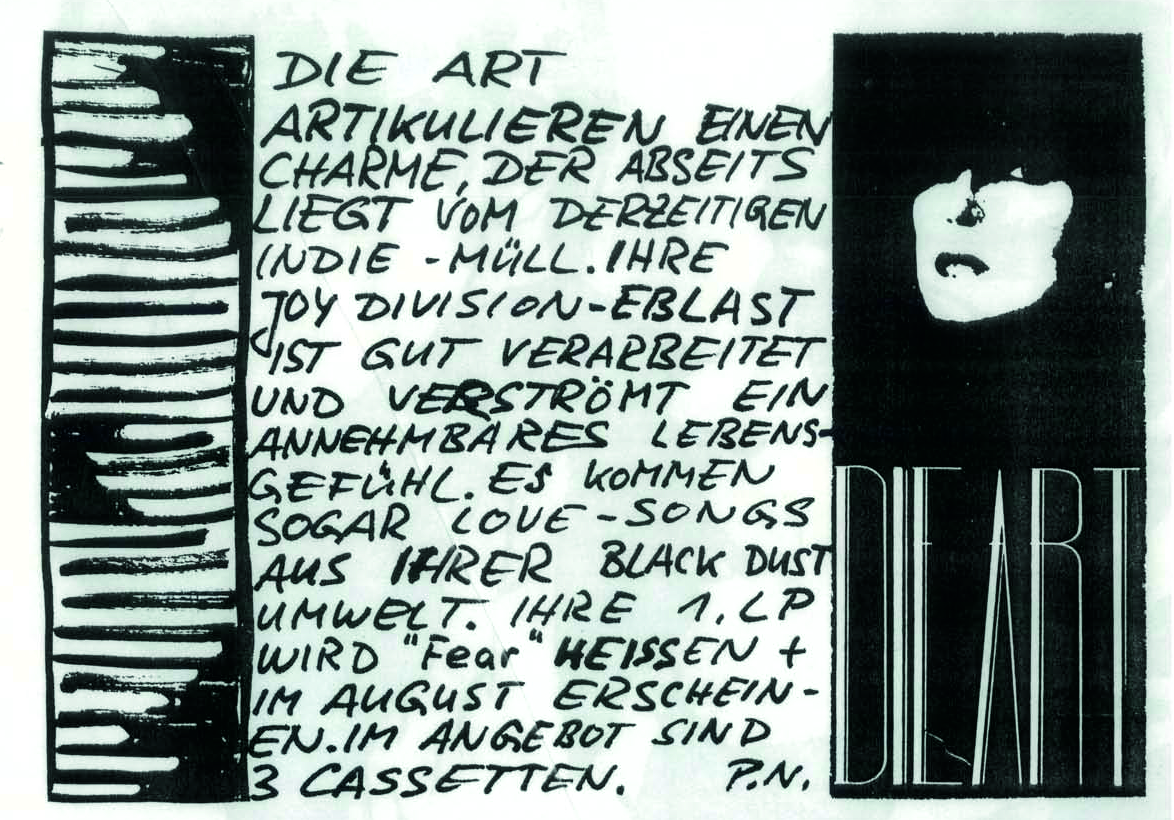 DIE ART
ARTIKULIEREN EINEN
CHARME, DER ABSEITS
LIEGT VOM DERZEITIGEN
INDIE -MÜLL. IHRE
JOY DIVISION-EBLAST
IST GUT VERARBEITET
UND VERSTRÖMT EIN
ANNEHMBARES LEBENS-
GEFÜHL. ES KOMMEN
SOGAR LOVE-SONGS
AUS IHRER BLACK DUST
UMWELT. IHRE 1. LP
WIRD "Fear" HEISSEN +
IM AUGUST ERSCHEIN-
EN. IM ANGEBOT SIND
3 CASSETTEN. P.N.
DIE ART